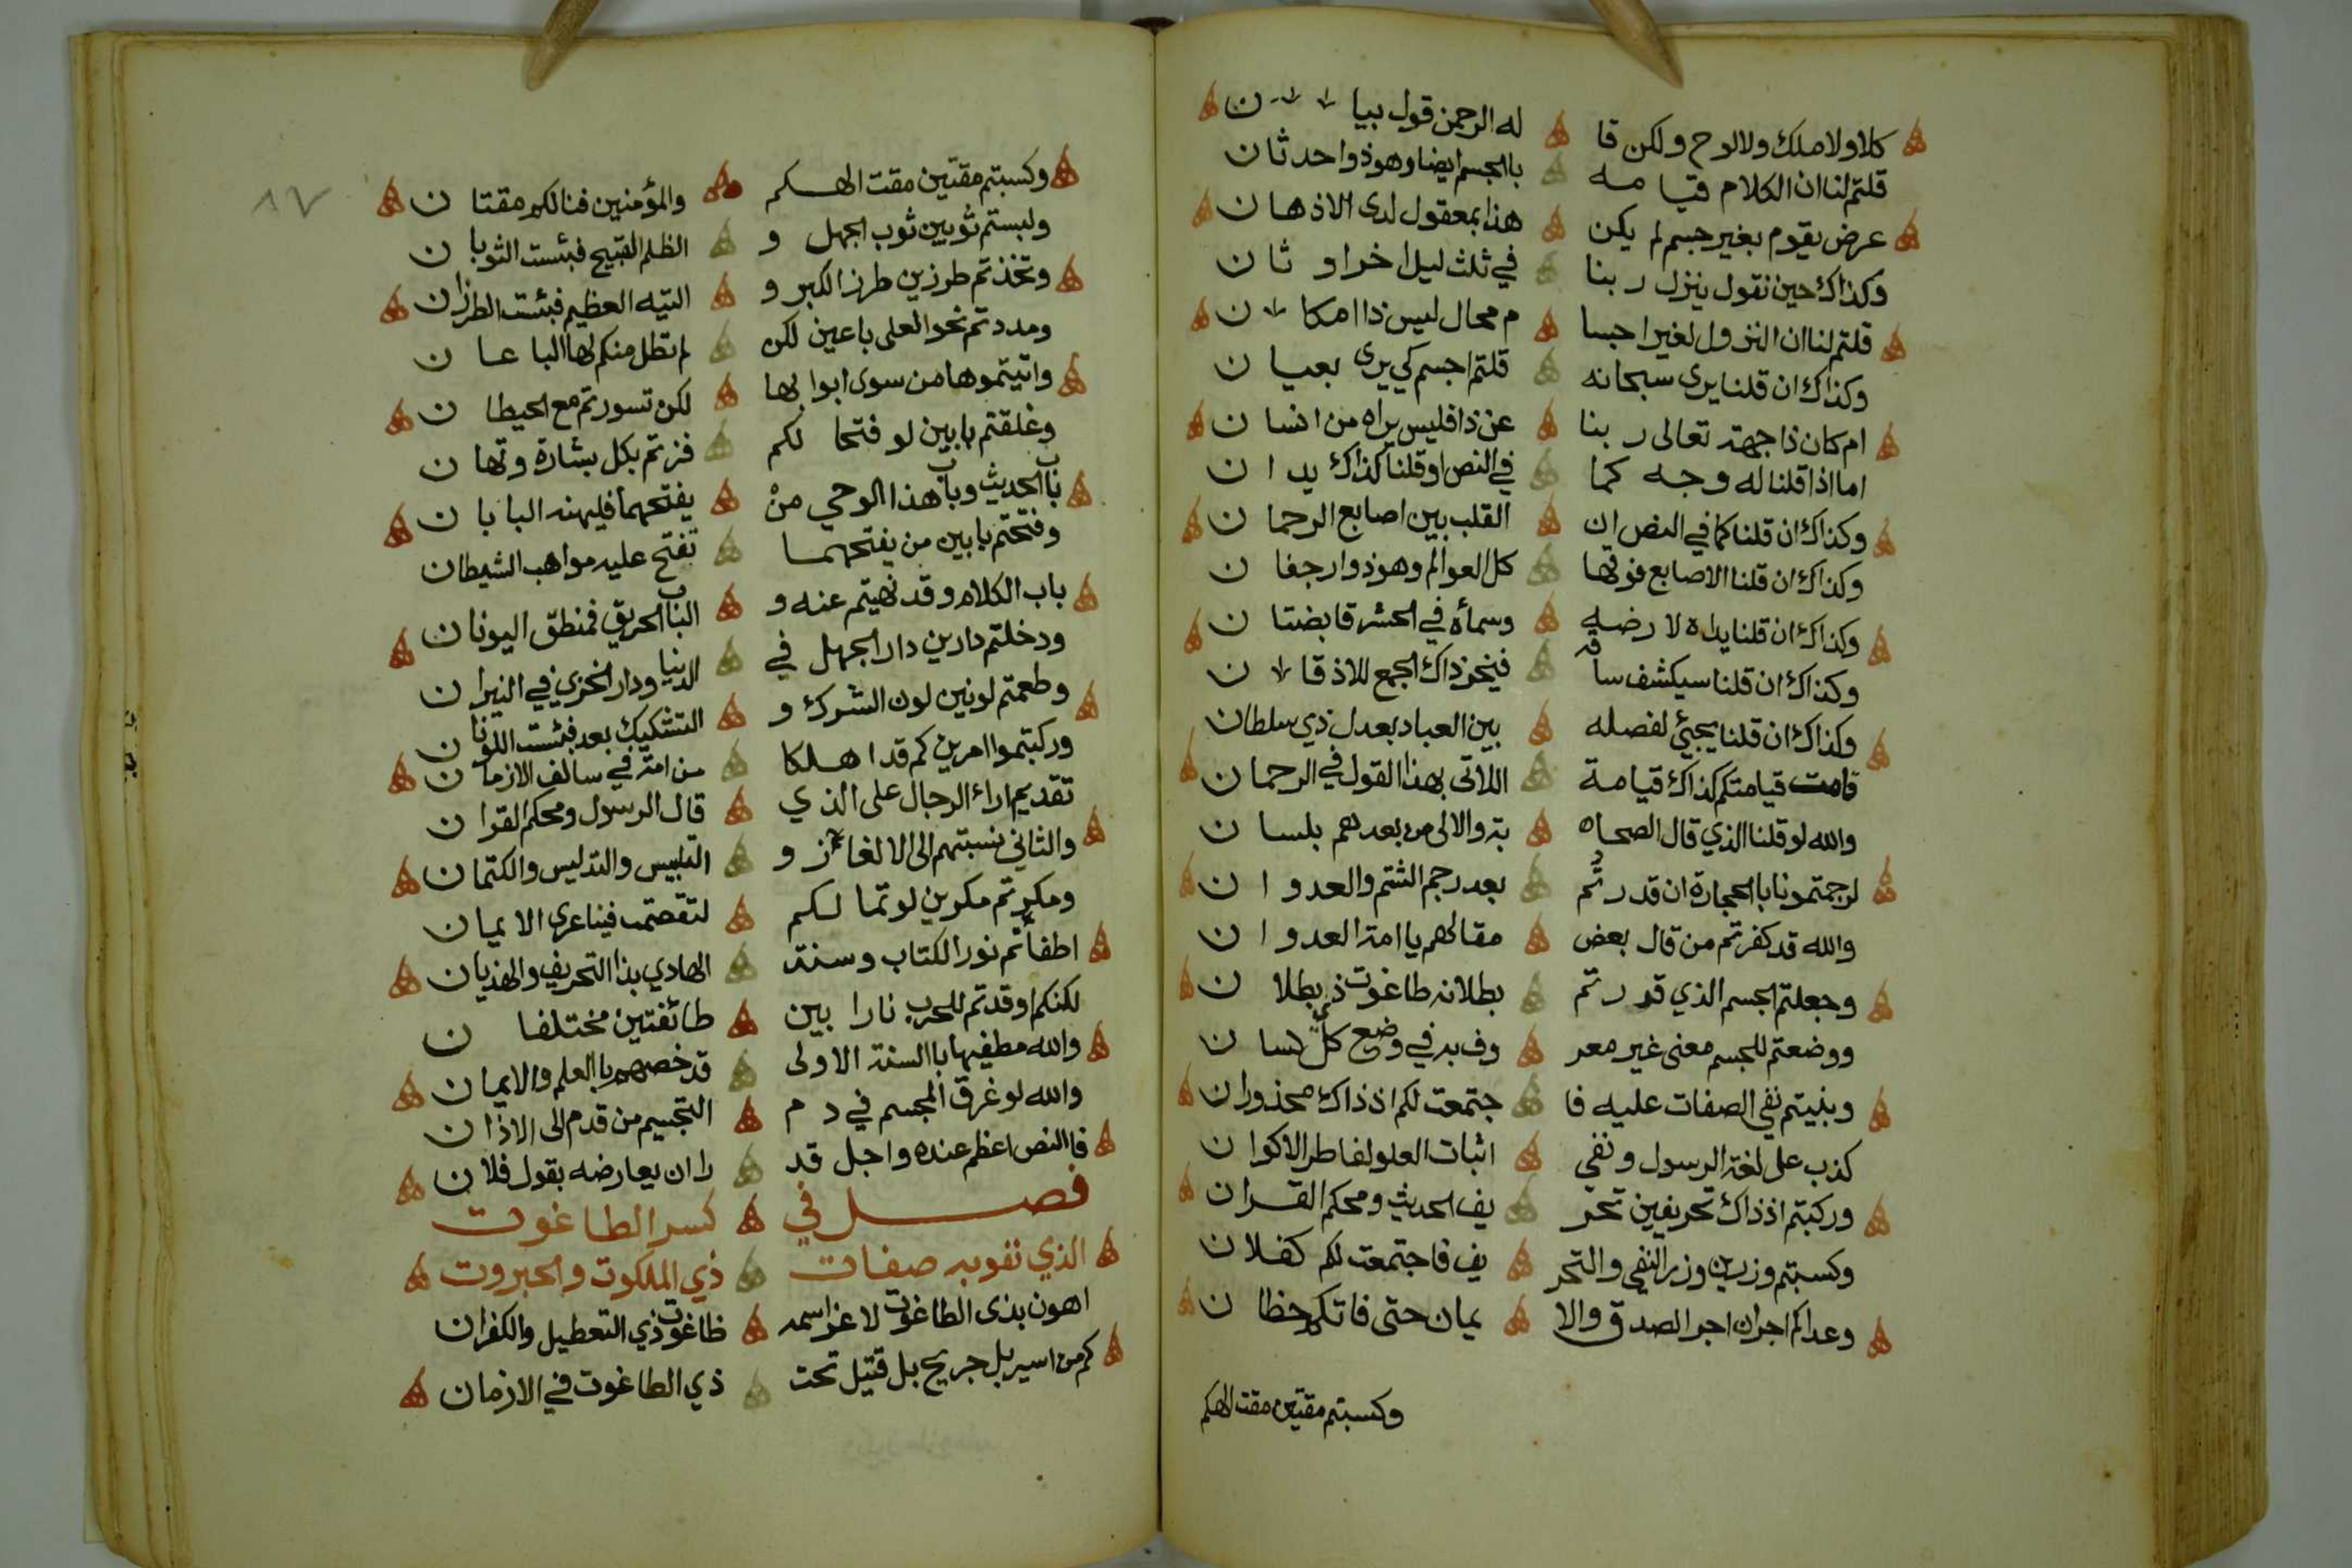 كلا ولا ملك ولا لوح ولكن قا له الرحمن قول بيان
قلتم لنا ان الكلام قيامه بالجسم ايضا وهو ذو حدثان
عرض يقوم بغير جسم لم يكن هذا بمعقول لدى الاذهان
وكذاك حين نقول ينزل ربنا في ثلث ليل اخر او ثان
قلتم لنا ان النزول لغير اجسا م محال ليس ذا امكان
وكذاك ان قلنا يرى سبحانه قلتم اجسم كي يرى بعيان
ام كان ذا جهة تعالى ربنا عن ذا فليس يراه من انسان
اما اذا قلنا له وجه كما في النص او قلنا كذاك يدان
وكذاك ان قلنا كما في النص ان القلب بين اصابع الرحمان
وكذاك ان قلنا الاصابع فوقها كل العوالم وهو ذو ارجفان
وكذاك ان قلنا يداه لارضه وسمأه في الحشر قابضتان
وكذاك ان قلنا سيكشف ساقه فيخر ذاك الجمع للاذقان
وكذاك ان قلنا يجيئ لفصله بين العباد بعدل ذي سلطان
قامت قيامتكم كذاك قيامة اللاتى بهذا القول في الرحمان
والله لو قلنا الذي قال الصحا به والالى من بعدهم بلسان
لرجمتمونا بالحجارة ان قدرتم بعد رجم الشتم والعدوان
والله قد كفرتم من قال بعض مقالهم يا امة العدوان
وجعلتم الجسم الذي قدرتم بطلانه طاغوت ذي بطلان
ووضعتم للجسم معنى غير معر وف به في وضع كل لسان
وبنيتم نفي الصفات عليه فا جتمعت لكم اذ ذاك محذوران
كذب على لغة الرسول ونفي اثبات العلو لفاطر الاكوان
وركبتم اذ ذاك تحريفين تحر يف الحديث ومحكم القران
وكسبتم وزرين وزر النفي والتحر يف فاجتمعت لكم كفلان
وعداكم اجران اجر الصدق والا يمان حتى فاتكم حظان
وكسبتم مقتين مقت الهكم
٨٧
وكسبتم مقتين مقت الهكم والمؤمنين فنالكم مقتان
ولبستم ثوبين ثوب الجهل و الظلم القبيح فبئست الثوبان
وتخذتم طرزين طرز الكبر و التيه العظيم فبئست الطرزان
ومددتم نحو العلى باعين لكن لم تطل منكم لها الباعان
واتيتموها من سوى ابوابها لكن تسورتم مع الحيطان
وغلقتم بابين لو فتحا لكم فزتم بكل بشارة وتهان
باب الحديث وباب هذا الوحي من يفتحهما فليهنه البابان
وفتحتم بابين من يفتحهما تفتح عليه مواهب الشيطان
باب الكلام وقد نهيتم عنه و الباب الحريق فمنطق اليونان
ودخلتم دارين دار الجهل في الدنيا ودار الخزي في النيران
وطعمتم لونين لون الشرك و التشكيك بعد فبئست اللونان
وركبتموا امرين كم قد اهلكا من امة في سالف الازمان
تقديم اراء الرجال على الذي قال الرسول ومحكم القران
والثاني نسبتهم الى الالغاز و التلبيس والتدليس والكتمان
ومكرتم مكرين لو تما لكم لتقصمت فينا عرى الايمان
اطفأتم نور الكتاب وسنة الهادي بذا التحريف والهذيان
لكنكم اوقدتم للحرب نارا بين طائفتين مختلفان
والله مطفيها بالسنة الاولى قد خصهم بالعلم والايمان
والله لو غرق المجسم في دم التجسيم من قدم الى الاذان
فالنص اعظم عنده واجل قد را ان يعارضه بقول فلان
فصل في كسر الطاغوت
الذي نفوبه صفات ذي الملكوت والجبروت
اهون بذى الطاغوت لا عز اسمه طاغوت ذي التعطيل والكفران
كم من اسير بل جريح بل قتيل تحت ذي الطاغوت في الازمان